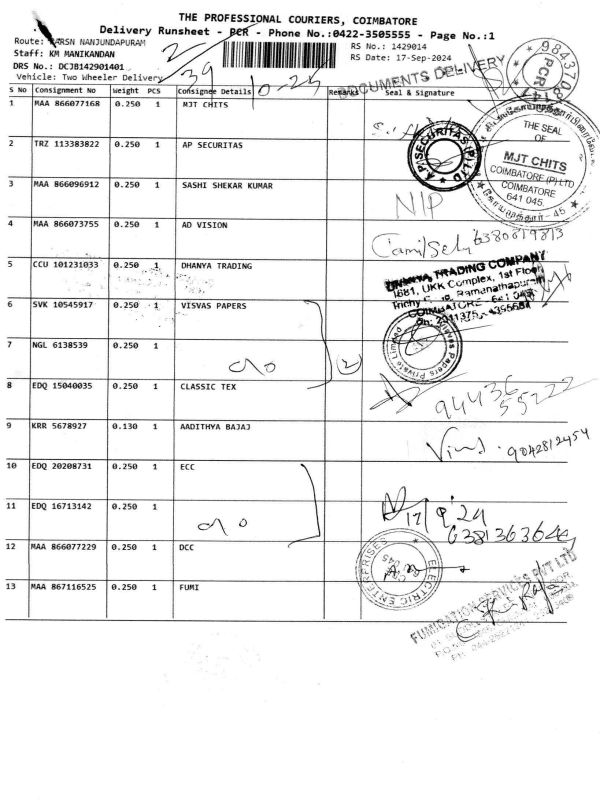 THE PROFESSIONAL COURIERS, COIMBATORE
Delivery Runsheet - PCR - Phone No.:0422-3505555 - Page No.:1
Route: NANJUNDAPURAM
RS No.: 1429014
Staff: KM MANIKANDAN
RS Date: 17-Sep-2024
DRS No.: DCJB142901401
Vehicle: Two Wheeler Delivery
2
39
10-25
DOCUMENTS DELIVERY
PCR
S No Consignment No Weight PCS Consignee Details Remarks Seal & signature
1 MAA 866077168 0.250 1 MJT CHITS
THE SEAL
OF
MJT CHITS
COIMBATORE (P) LTD
COIMBATORE
641 045.
2 TRZ 113383822 0.250 1 AP SECURITAS
A.P. SECURITAS (P) LTD
3 MAA 866096912 0.250 1 SASHI SHEKAR KUMAR
N/P
4 MAA 866073755 0.250 1 AD VISION
5 CCU 101231033 0.250 1 DHANYA TRADING
DHANYA TRADING COMPANY
1681, UKK Complex, 1st Floor
COIMBATORE - 641 045
6 SVK 10545917 0.250 1 VISVAS PAPERS
Visvas Papers Private Limited
7 NGL 6138539 0.250 1
(2)
8 EDQ 15040035 0.250 1 CLASSIC TEX
94436
55222
9 KRR 5678927 0.130 1 AADITHYA BAJAJ
9042812454
10 EDQ 20208731 0.250 1 ECC
11 EDQ 16713142 0.250 1
17/9/24
12 MAA 866077229 0.250 1 DCC
ELECTRIC ENTERPRISES
13 MAA 867116525 0.250 1 FUMI
FUMIGATION SERVICES PVT LTD